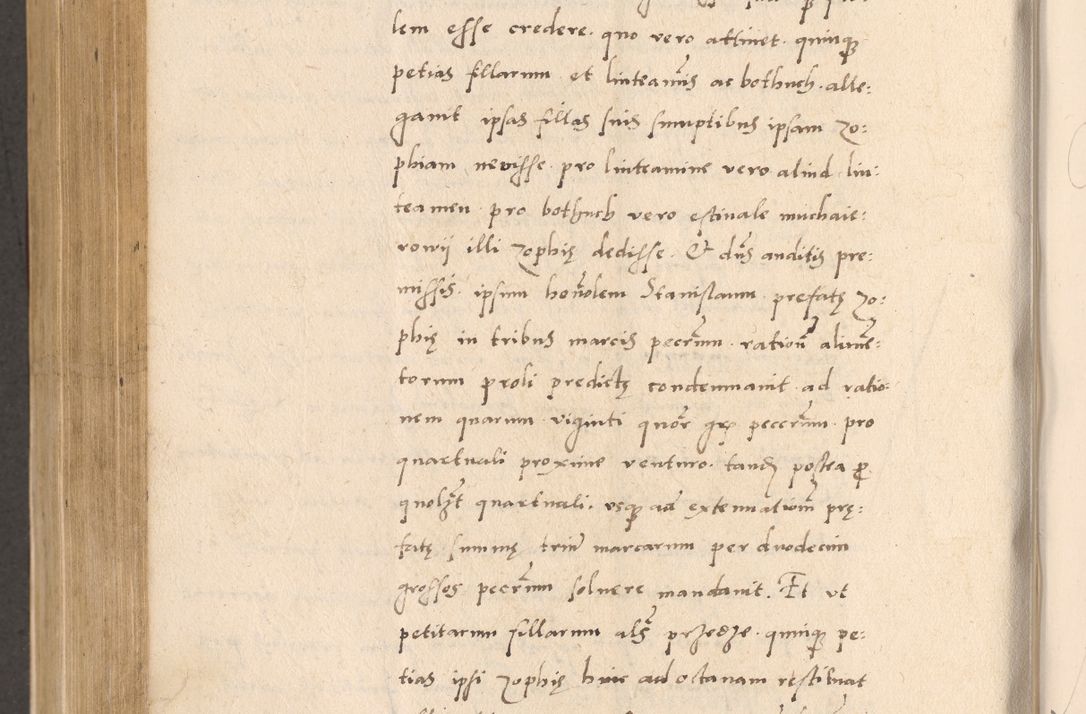 lem esse credere. quo vero attinet quinq
petias fillarum et linteaminis ac bothuch. alle:
gavit ipsas fillas suis sumptibus ipsam zo:
phiam nevisse. pro linteamine vero aliud lin:
teamen pro bothuch vero estivale muchaie:
rowij illi zophię dedisse. Et dns auditis pre:
missis. ipsum honolem Stanislaum prefatę zo:
phię in tribus marcis pecrum. ration alime:
torum proli predictę condemnavit. ad ratio:
nem quarum viginti quor gr pecerum. pro
quartuali proxime venturo. tand postea pro
quolzt quartuali. usq ad extenuation prę:
fatę summę trium marcarum per duodecim
grossos pecrum solvere mandavit. Et ut
petitarum fillarum als przedze. quinq pe:
tias ipsi zophię hinc ad octavam restituat